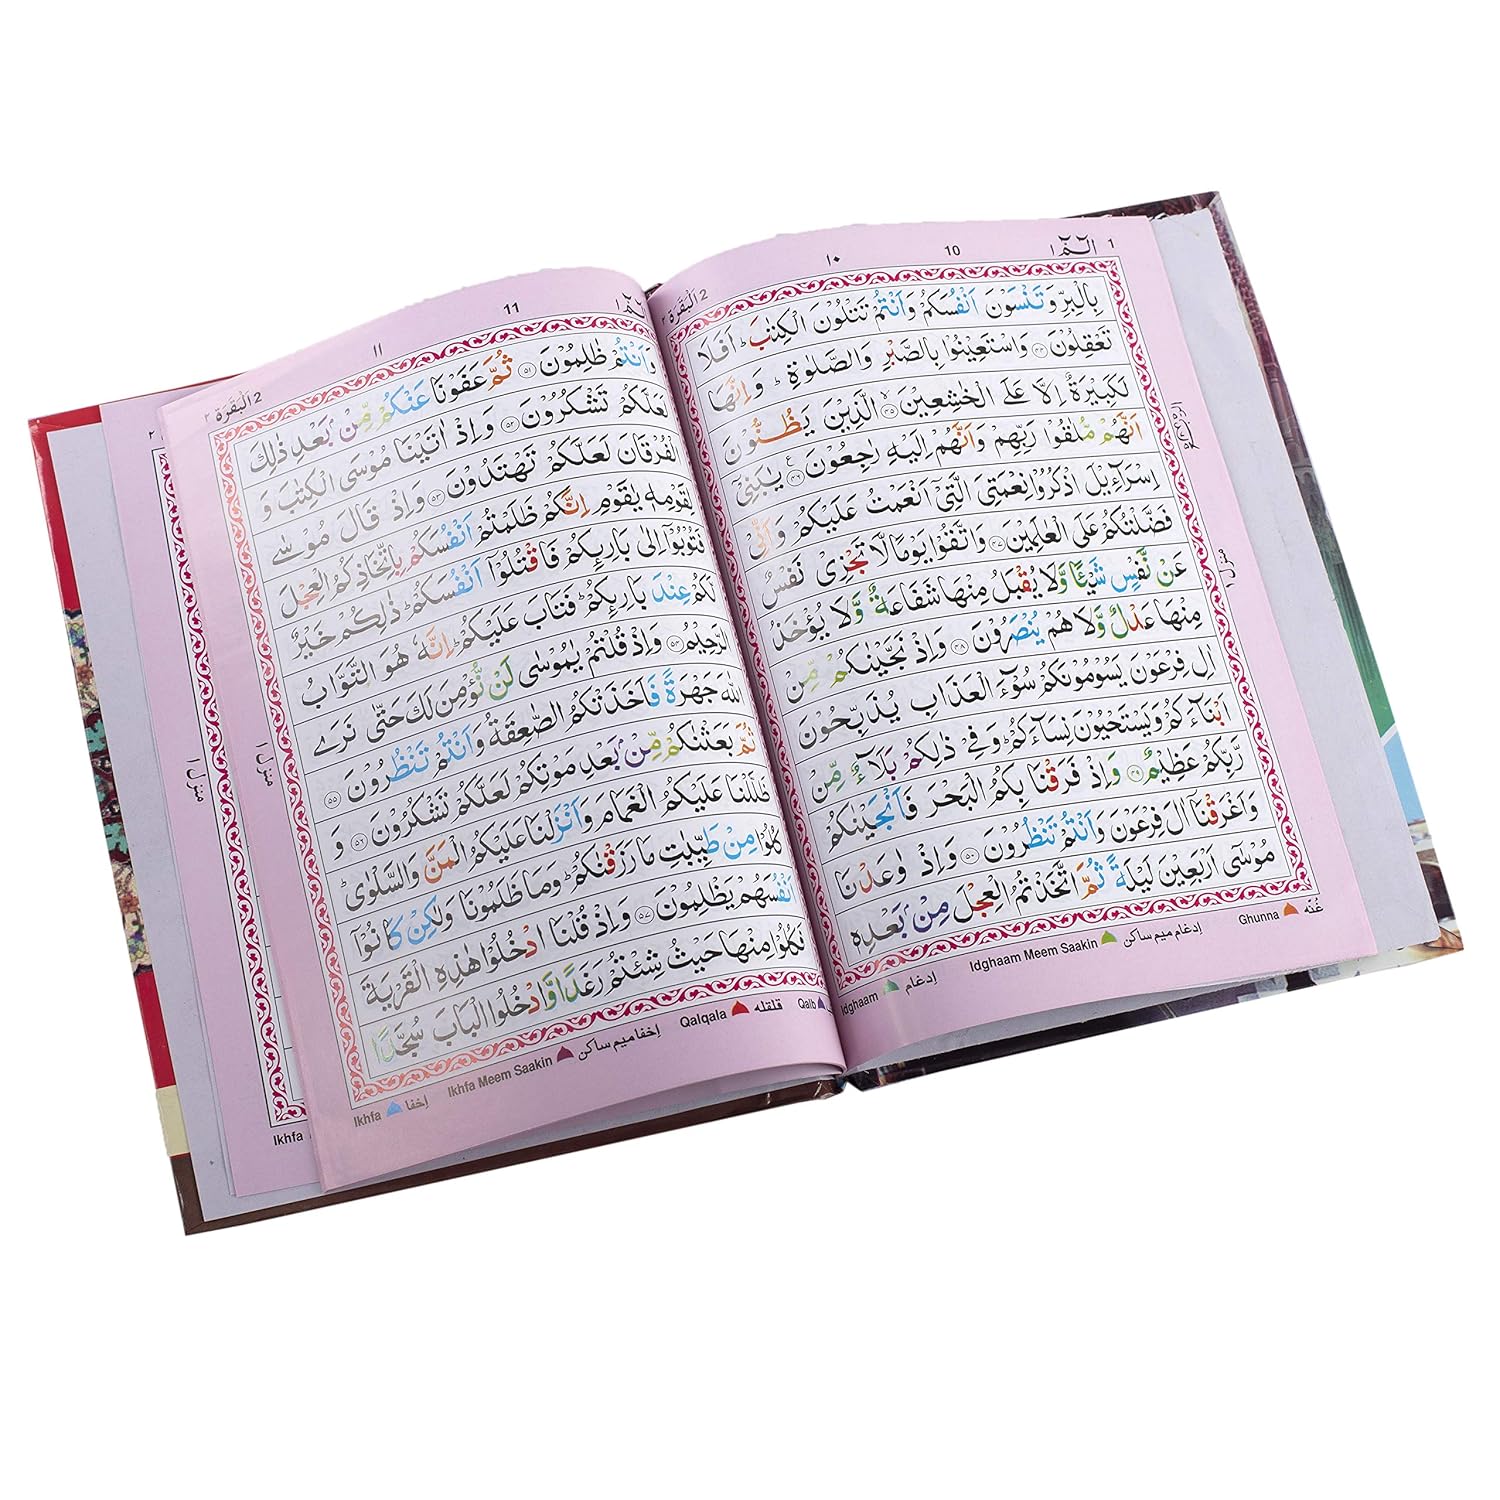 1 الٓمّٓ ١
10
١٠
2 اَلْبَقَرَة ٢
بِالْبِرِّ وَتَنْسَوْنَ اَنْفُسَكُمْ وَاَنْتُمْ تَتْلُوْنَ الْكِتٰبَ ؕ اَفَلَا
تَعْقِلُوْنَ ﴿۴۴﴾ وَاسْتَعِيْنُوْا بِالصَّبْرِ وَالصَّلٰوةِ ؕ وَاِنَّهَا
لَكَبِيْرَةٌ اِلَّا عَلَى الْخٰشِعِيْنَ ﴿۴۵﴾ الَّذِيْنَ يَظُنُّوْنَ
اَنَّهُمْ مُّلٰقُوْا رَبِّهِمْ وَاَنَّهُمْ اِلَيْهِ رٰجِعُوْنَ ﴿۴۶﴾ يٰبَنِيْۤ
اِسْرَآءِيْلَ اذْكُرُوْا نِعْمَتِيَ الَّتِيْۤ اَنْعَمْتُ عَلَيْكُمْ وَاَنِّيْ
فَضَّلْتُكُمْ عَلَى الْعٰلَمِيْنَ ﴿۴۷﴾ وَاتَّقُوْا يَوْمًا لَّا تَجْزِيْ نَفْسٌ
عَنْ نَّفْسٍ شَيْـًٔا وَّلَا يُقْبَلُ مِنْهَا شَفَاعَةٌ وَّلَا يُؤْخَذُ
مِنْهَا عَدْلٌ وَّلَا هُمْ يُنْصَرُوْنَ ﴿۴۸﴾ وَاِذْ نَجَّيْنٰكُمْ مِّنْ
اٰلِ فِرْعَوْنَ يَسُوْمُوْنَكُمْ سُوْٓءَ الْعَذَابِ يُذَبِّحُوْنَ
اَبْنَآءَكُمْ وَيَسْتَحْيُوْنَ نِسَآءَكُمْ ؕ وَفِيْ ذٰلِكُمْ بَلَآءٌ مِّنْ
رَّبِّكُمْ عَظِيْمٌ ﴿۴۹﴾ وَاِذْ فَرَقْنَا بِكُمُ الْبَحْرَ فَاَنْجَيْنٰكُمْ
وَاَغْرَقْنَاۤ اٰلَ فِرْعَوْنَ وَاَنْتُمْ تَنْظُرُوْنَ ﴿۵۰﴾ وَاِذْ وٰعَدْنَا
مُوْسٰۤى اَرْبَعِيْنَ لَيْلَةً ثُمَّ اتَّخَذْتُمُ الْعِجْلَ مِنْۢ بَعْدِهٖ
منزل ١
Ghunna غُنّه
Idghaam Meem Saakin إدغام ميم ساكن
Idghaam إدغام
11
١١
2 اَلْبَقَرَة ٢
وَاَنْتُمْ ظٰلِمُوْنَ ﴿۵۱﴾ ثُمَّ عَفَوْنَا عَنْكُمْ مِّنْۢ بَعْدِ ذٰلِكَ
لَعَلَّكُمْ تَشْكُرُوْنَ ﴿۵۲﴾ وَاِذْ اٰتَيْنَا مُوْسَى الْكِتٰبَ وَ
الْفُرْقَانَ لَعَلَّكُمْ تَهْتَدُوْنَ ﴿۵۳﴾ وَاِذْ قَالَ مُوْسٰى
لِقَوْمِهٖ يٰقَوْمِ اِنَّكُمْ ظَلَمْتُمْ اَنْفُسَكُمْ بِاتِّخَاذِكُمُ الْعِجْلَ
فَتُوْبُوْۤا اِلٰى بَارِئِكُمْ فَاقْتُلُوْۤا اَنْفُسَكُمْ ؕ ذٰلِكُمْ خَيْرٌ
لَّكُمْ عِنْدَ بَارِئِكُمْ ؕ فَتَابَ عَلَيْكُمْ ؕ اِنَّهٗ هُوَ التَّوَّابُ
الرَّحِيْمُ ﴿۵۴﴾ وَاِذْ قُلْتُمْ يٰمُوْسٰى لَنْ نُّؤْمِنَ لَكَ حَتّٰى نَرَى
اللّٰهَ جَهْرَةً فَاَخَذَتْكُمُ الصّٰعِقَةُ وَاَنْتُمْ تَنْظُرُوْنَ ﴿۵۵﴾
ثُمَّ بَعَثْنٰكُمْ مِّنْۢ بَعْدِ مَوْتِكُمْ لَعَلَّكُمْ تَشْكُرُوْنَ ﴿۵۶﴾ وَ
ظَلَّلْنَا عَلَيْكُمُ الْغَمَامَ وَاَنْزَلْنَا عَلَيْكُمُ الْمَنَّ وَالسَّلْوٰى ؕ
كُلُوْا مِنْ طَيِّبٰتِ مَا رَزَقْنٰكُمْ ؕ وَمَا ظَلَمُوْنَا وَلٰكِنْ كَانُوْۤا
اَنْفُسَهُمْ يَظْلِمُوْنَ ﴿۵۷﴾ وَاِذْ قُلْنَا ادْخُلُوْا هٰذِهِ الْقَرْيَةَ
فَكُلُوْا مِنْهَا حَيْثُ شِئْتُمْ رَغَدًا وَّادْخُلُوا الْبَابَ سُجَّدًا
منزل ١
Qalb
Qalqala قلقله
Ikhfa Meem Saakin إخفا ميم ساكن
Ikhfa إخفا
منزل ١
Ikhfa